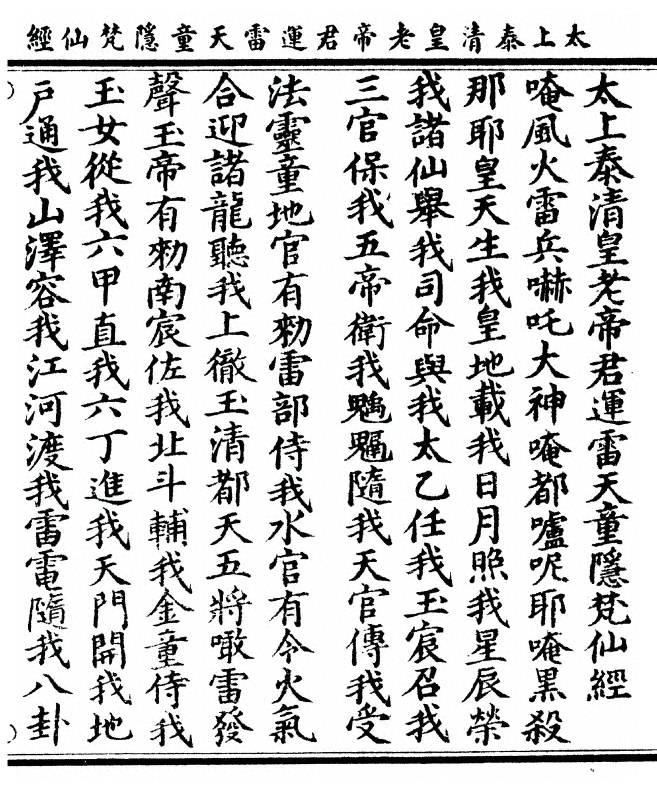 太上泰清皇老帝君運雷天童隱梵仙經
太上泰清皇老帝君運雷天童隱梵仙經
唵風火雷兵嚇吒大神唵都嚧呢耶唵黑殺
那耶皇天生我皇地載我日月照我星辰榮
我諸仙舉我司命與我太乙任我玉宸召我
三官保我五帝衛我隨我天官傳我受
法靈童地官有勑雷部侍我水官有令火氣
合迎諸龍聽我上徹玉清都天五將噉雷發
聲玉帝有勑南宸佐我北斗輔我金童侍我
玉女從我六甲直我六丁進我天門開我地
戶通我山澤容我江河渡我雷電隨我八卦